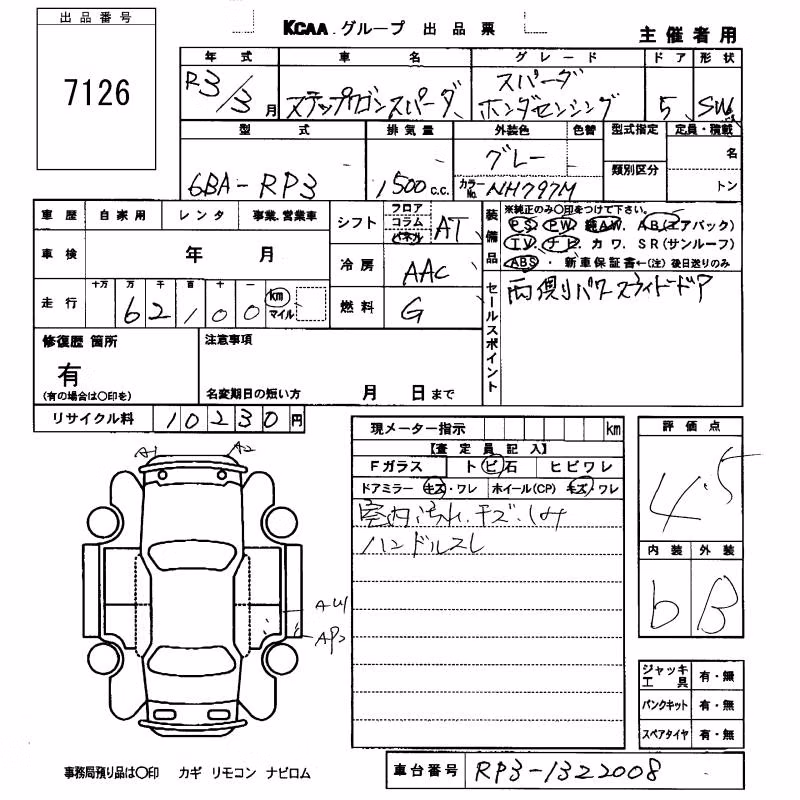 出品番号
7126
KCAA.グループ 出品票
主催者用
年式 車名 グレード ドア 形状
R3/3月 ステップワゴンスパーダ スパーダ ホンダセンシング 5 SW
型式 排気量 外装色 色替 型式指定 定員・積載
グレー 名
類別区分
6BA-RP3 1500c.c. カラーNo. NH797M トン
車歴 自家用 レンタ 事業.営業車
シフト フロア コラム パネル AT
車検 年 月
冷房 AAC
走行 十万 万 千 百 十 一
62100 km マイル
燃料 G
装備品 ※純正のみ〇印をつけて下さい。
PS. PW. 純AW. AB(エアバック)
TV. ナビ. カワ. SR(サンルーフ)
ABS・ 新車保証書←(注)後日送りのみ
セールスポイント 両側パワースライドドア
修復歴 箇所 注意事項
有
(有の場合は〇印を) 名変期日の短い方 月 日まで
リサイクル料 10230円
現メーター指示 km
【査定員記入】
Fガラス トビ石 ヒビワレ
ドアミラー キズ・ワレ ホイール(CP) キズ・ワレ
室内汚れ.キズ.しみ
ハンドルスレ
評価点
4.5
内装 外装
b B
A1 A2
AW1
AP2
ジャッキ工具 有・無
パンクキット 有・無
スペアタイヤ 有・無
事務局預り品は〇印 カギ リモコン ナビロム
車台番号 RP3-1322008